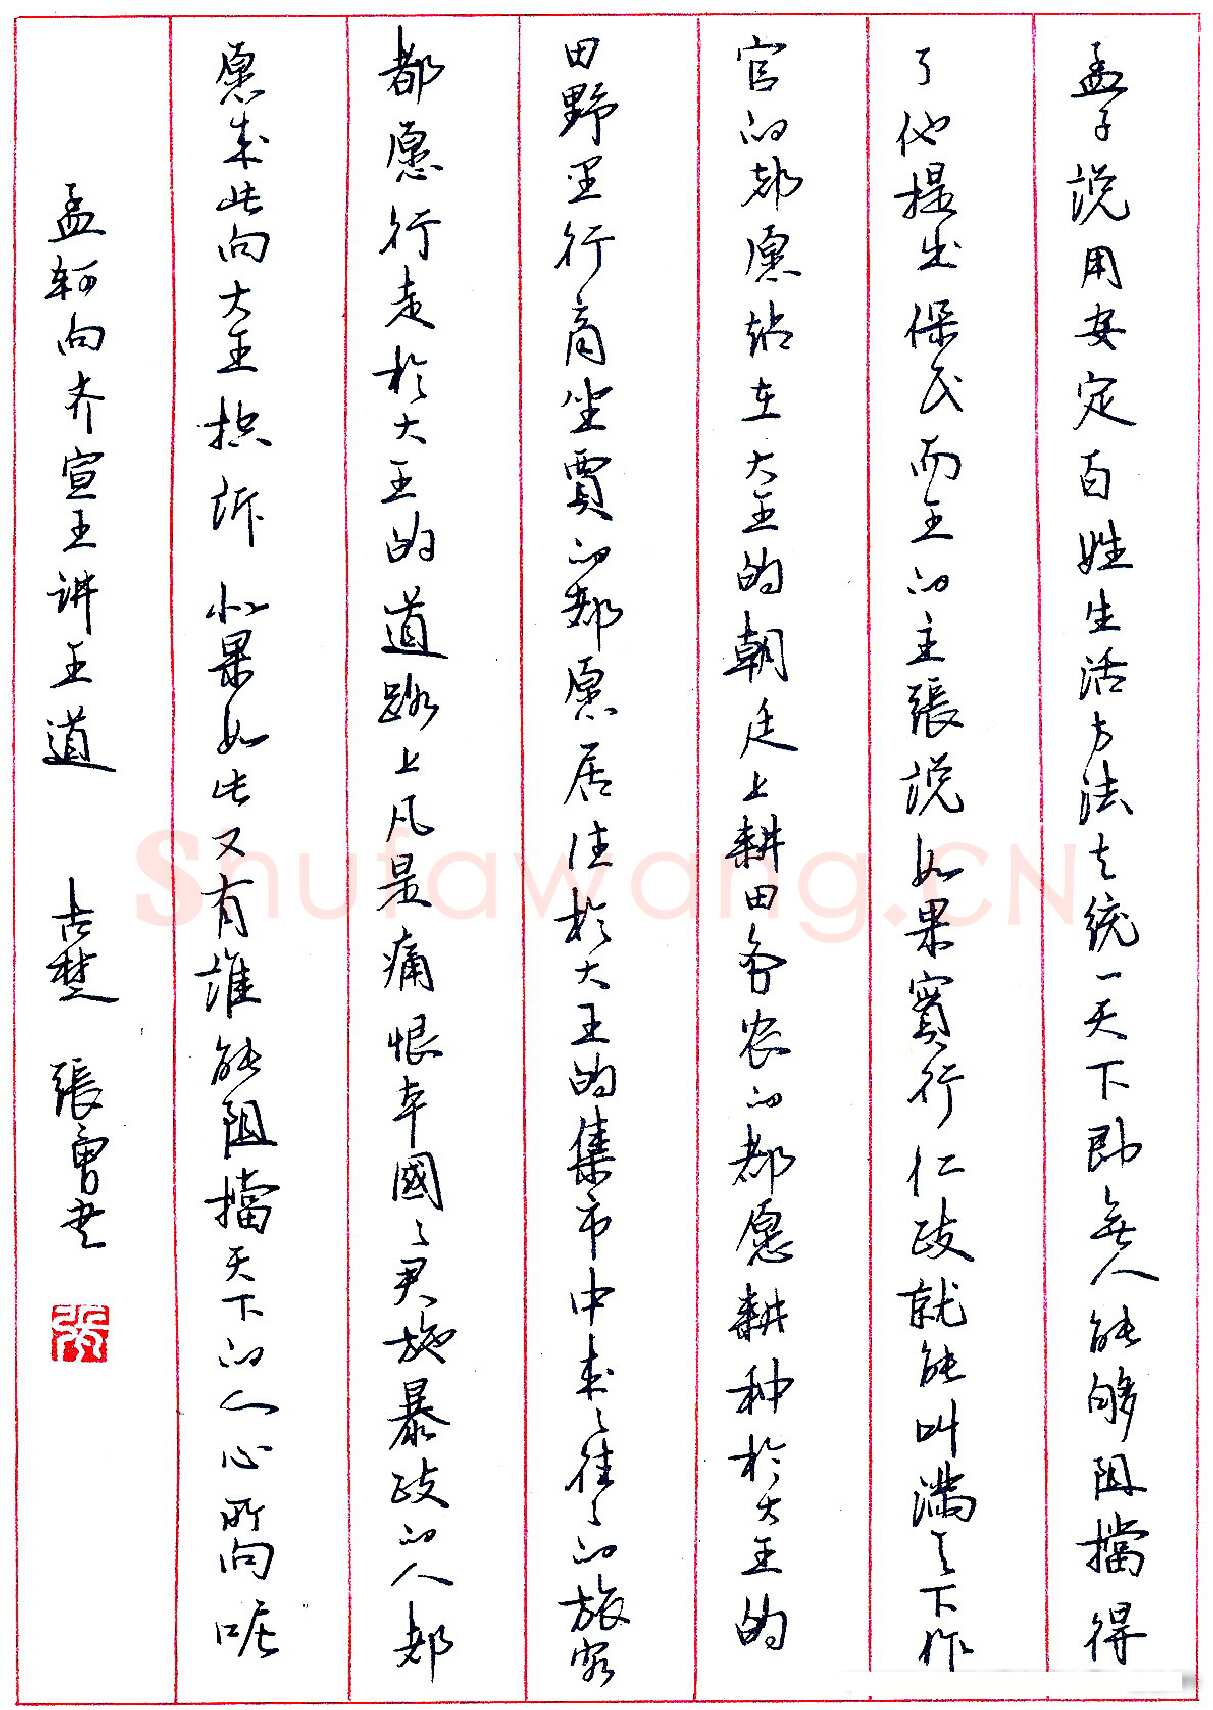 孟子说用安定百姓生活方法去统一天下即無人能够阻擋得
了他提出保民而王的主張说如果實行仁政就能叫满天下作
官的都愿站在大王的朝廷上耕田务农的都愿耕种於大王的
田野里行商坐賈的都愿居住於大王的集市中来々往々的旅客
都愿行走於大王的道路上凡是痛恨本國之君施暴政的人都
愿来此向大王控诉 如果如此又有谁能阻擋天下的人心所向呢
孟轲向齐宣王讲王道 古楚 張勇书
Shufawang.CN